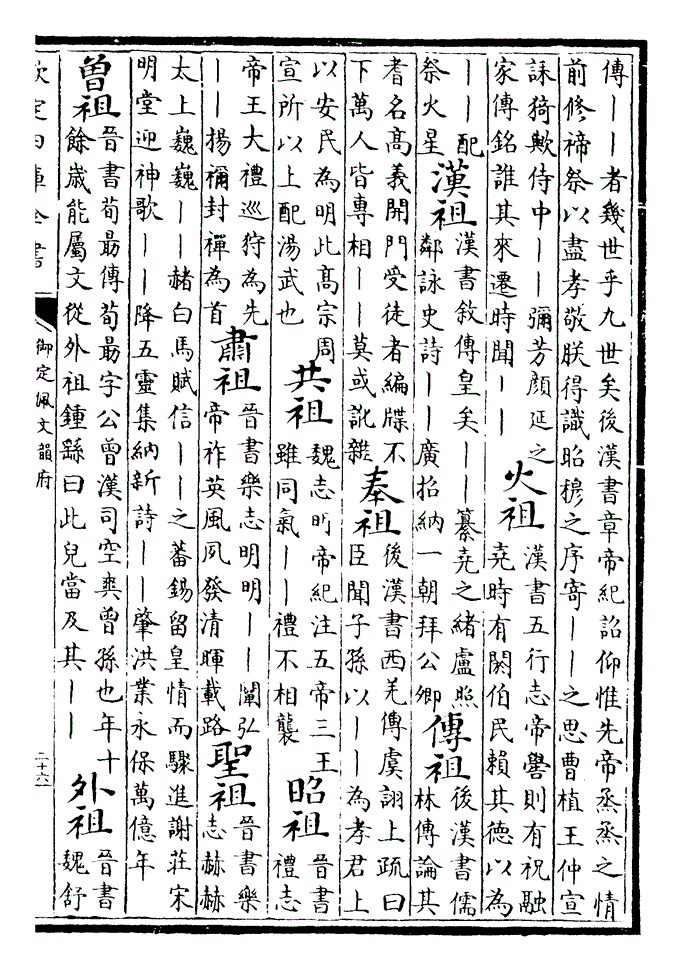 傳丨丨者幾世乎九世矣後漢書章帝紀詔仰惟先帝烝烝之情
前修禘祭以盡孝敬朕得識昭穆之序寄丨丨之思曹植王仲宣
誄猗歟侍中丨丨彌芳顔延之
家傳銘誰其來遷時聞丨丨
火祖
漢書五行志帝嚳則有祝融
堯時有閼伯民賴其德以為
丨丨配
祭火星
漢祖
漢書敘傳皇矣丨丨纂堯之緒盧照
鄰詠史詩丨丨廣招納一朝拜公卿
傳祖
後漢書儒
林傳論其
耆名高義開門受徒者編牒不
下萬人皆專相丨丨莫或訛雜
奉祖
後漢書西羌傳虞詡上疏曰
臣聞子孫以丨丨為孝君上
以安民為明此高宗周
宣所以上配湯武也
共祖
魏志明帝紀注五帝三王
雖同氣丨丨禮不相襲
昭祖
晉書
禮志
帝王大禮巡狩為先
丨丨揚禰封禪為首
肅祖
晉書樂志明明丨丨闡弘
帝祚英風夙發清暉載路
聖祖
晉書樂
志赫赫
太上巍巍丨丨赭白馬賦信丨丨之蕃錫留皇情而驟進謝莊宋
明堂迎神歌丨丨降五靈集納新詩丨丨肇洪業永保萬億年
曾祖
晉書荀勗傳荀勗字公曾漢司空爽曾孫也年十
餘歲能屬文從外祖鍾繇曰此兒當及其丨丨
外祖
晉書
魏舒
欽定四庫全書
御定佩文韻府
二十六